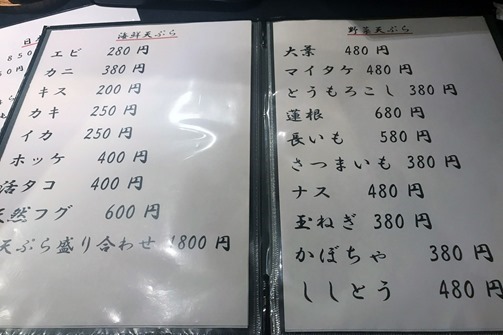 海鮮天ぷら
エビ 280円
カニ 380円
キス 200円
カキ 250円
イカ 250円
ホッケ 400円
活タコ 400円
天然フグ 600円
天ぷら盛り合わせ 1800円
野菜天ぷら
大葉 480円
マイタケ 480円
とうもろこし 380円
蓮根 680円
長いも 580円
さつまいも 380円
ナス 480円
玉ねぎ 380円
かぼちゃ 380円
ししとう 480円